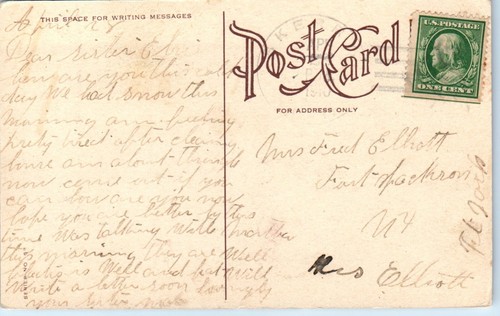 THIS SPACE FOR WRITING MESSAGES
Post Card
FOR ADDRESS ONLY
U.S. POSTAGE
ONE CENT
April
Dear Sister
are you this
day We had snow this
morning am feeling
pretty tired after cleaning
house am about through
now come out if you
can how are you now
hope you are better by this
time Was talking With Martha
this morning they are Well
is Well and
Write a letter soon lovingly
your sister
Mrs Fred Elliott
Fort Jackson
N Y
Ft Jack
Mrs Elliott